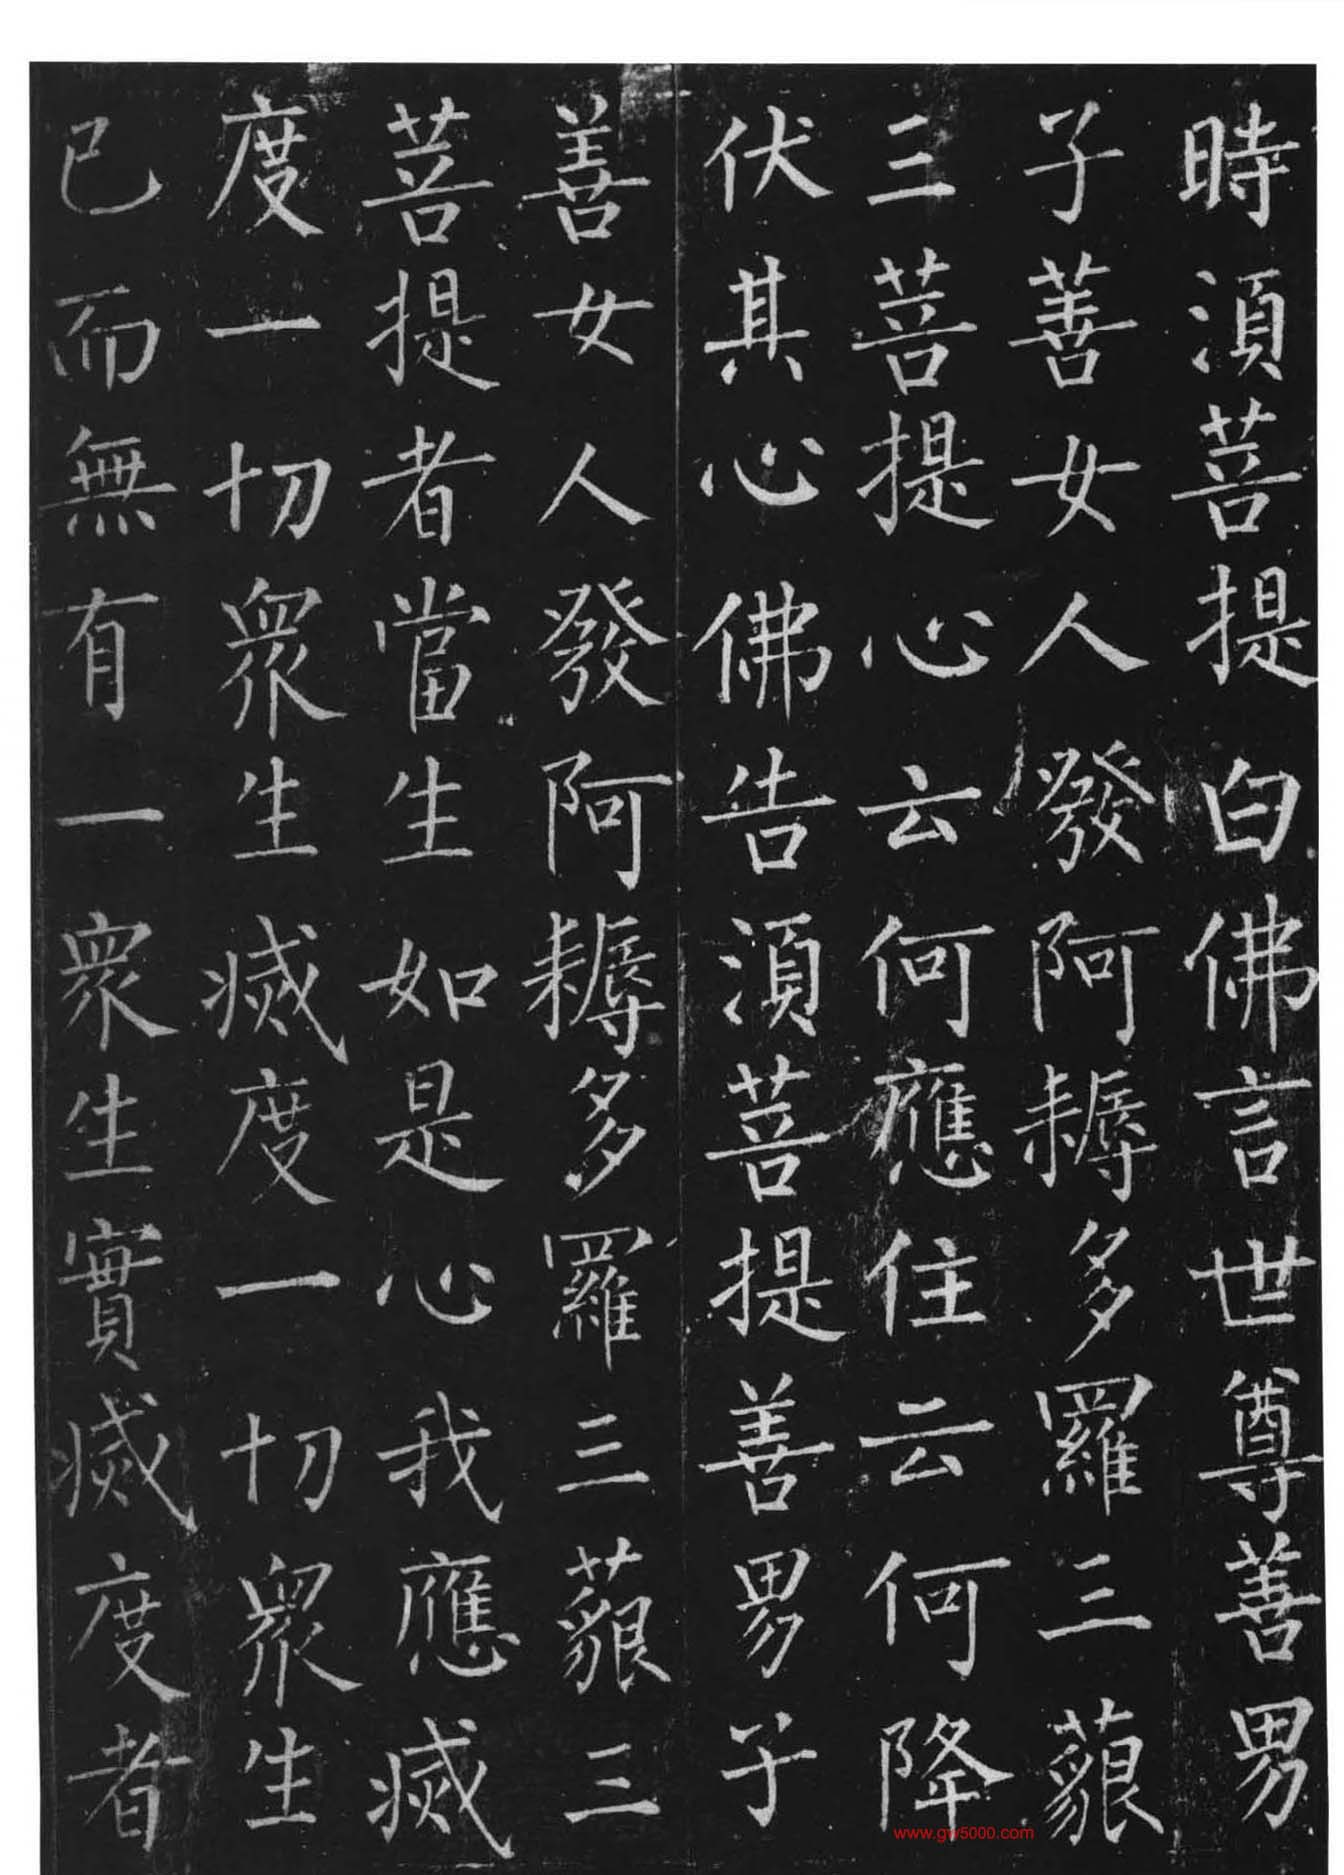 時湏菩提白佛言世尊善男
子善女人發阿耨多羅三藐
三菩提心云何應住云何降
伏其心佛告湏菩提善男子
善女人發阿耨多羅三藐三
菩提者當生如是心我應滅
度一切衆生滅度一切衆生
已而無有一衆生實滅度者
www.gw5000.com